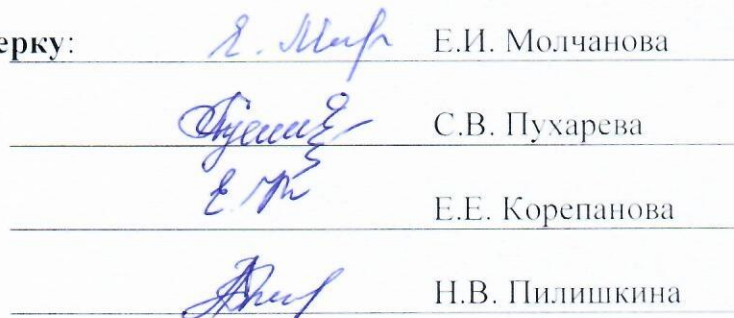 ерку: Е.И. Молчанова
С.В. Пухарева
Е.Е. Корепанова
Н.В. Пилишкина